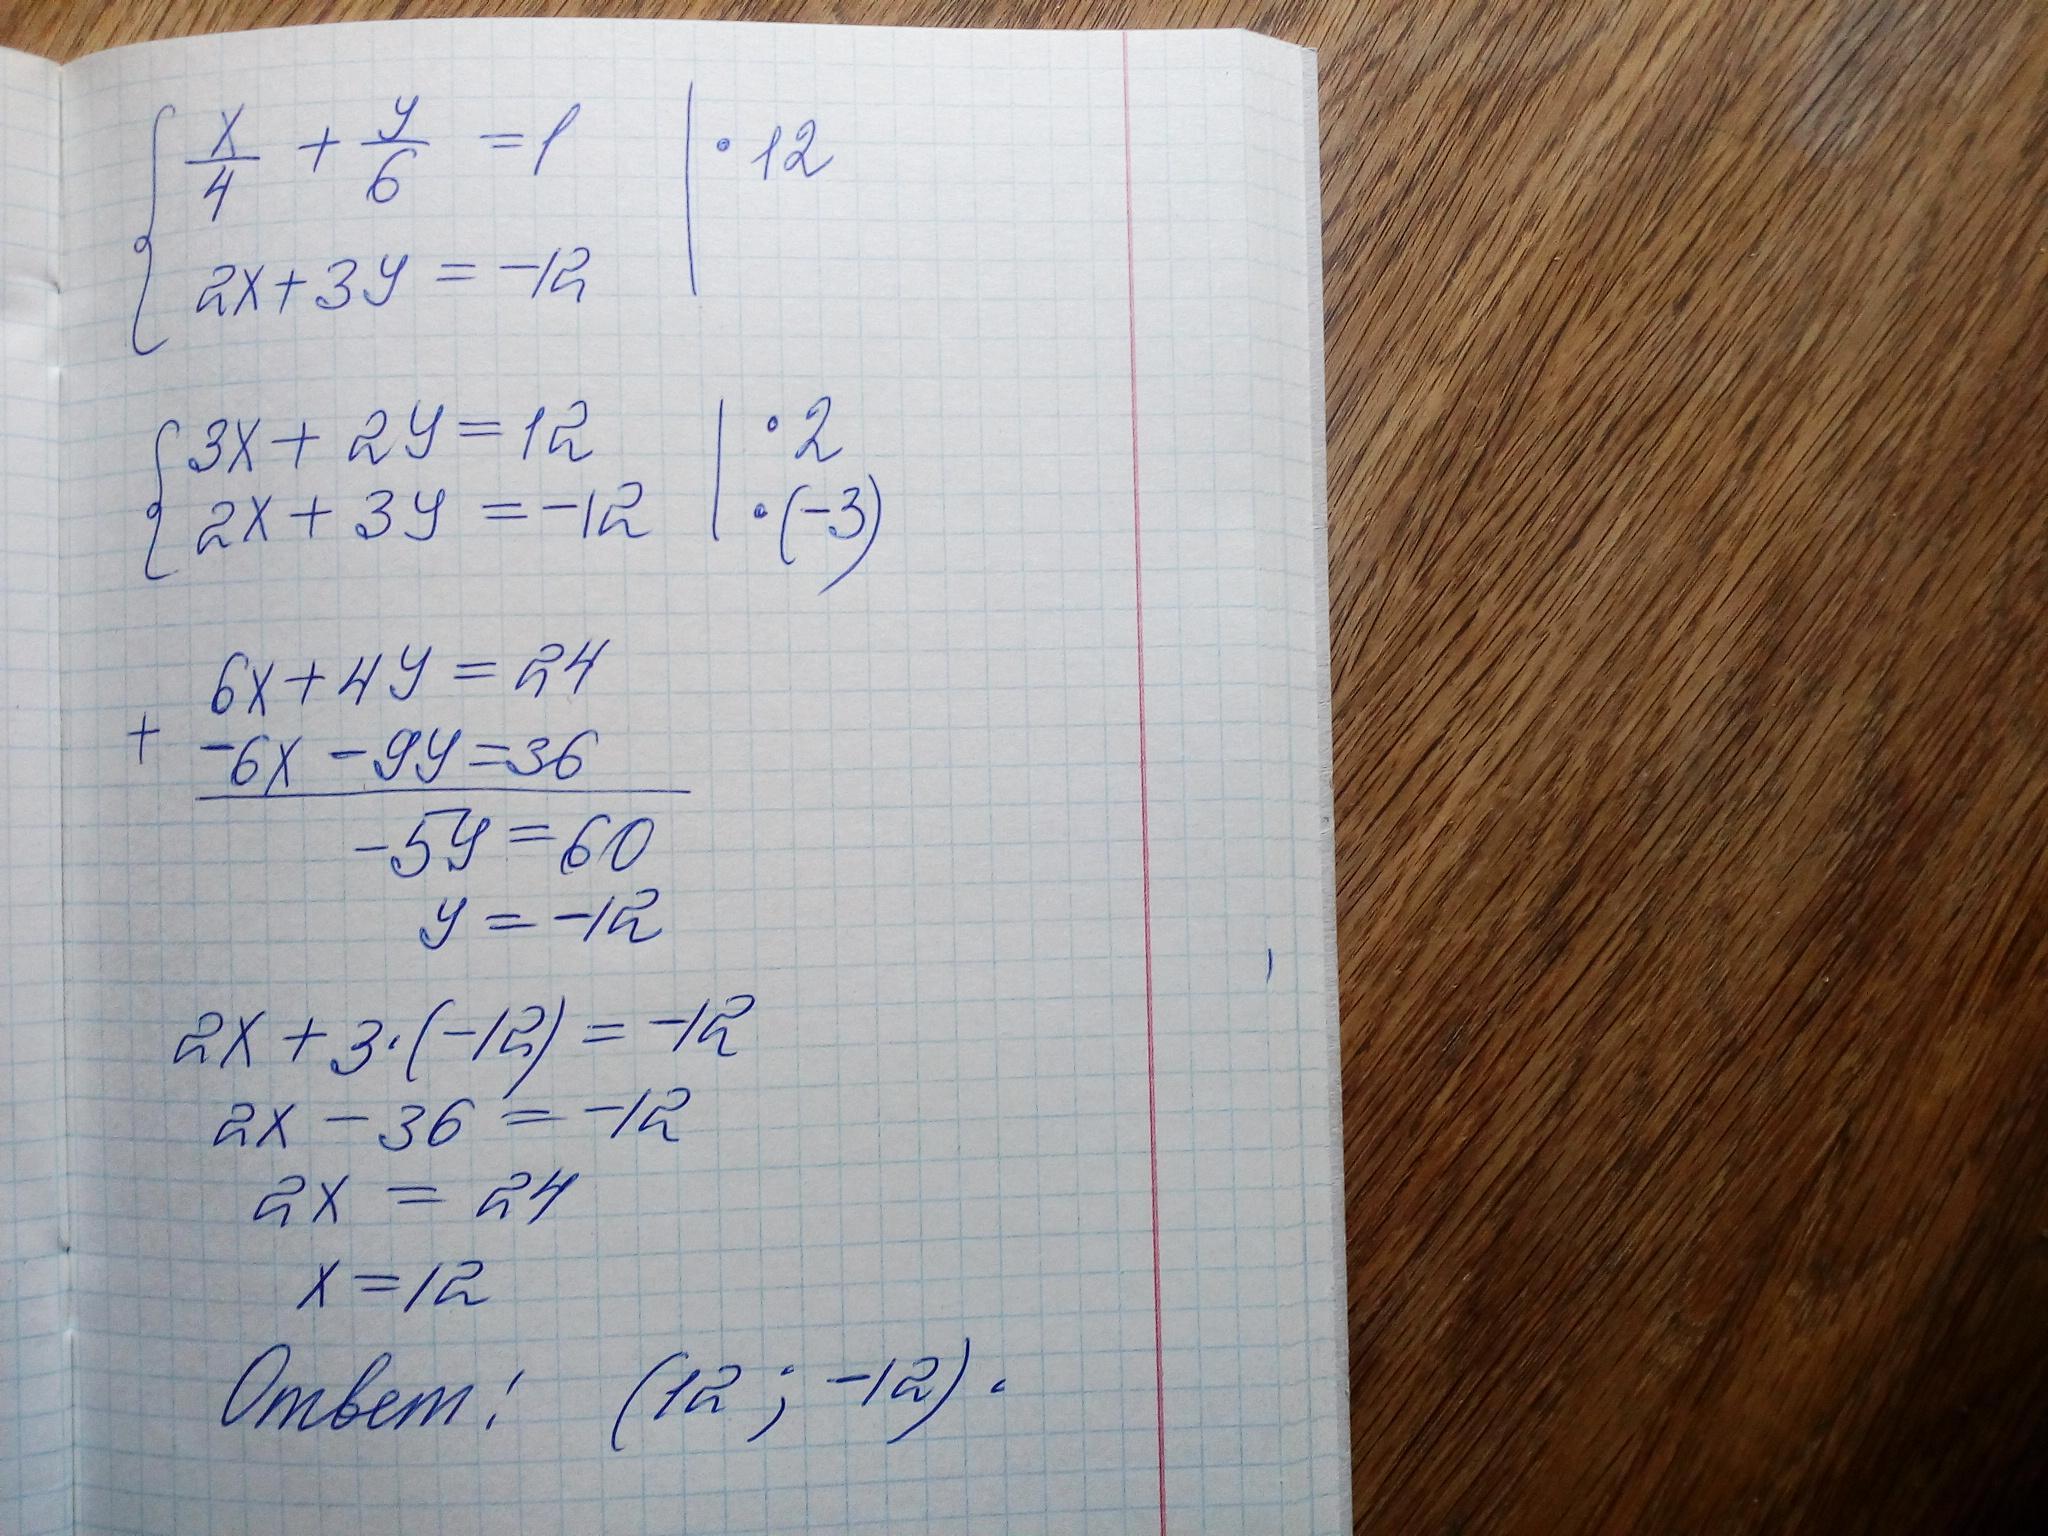 x/4 + y/6 = 1 | · 12
2x + 3y = -12
3x + 2y = 12 | · 2
2x + 3y = -12 | · (-3)
6x + 4y = 24
+ -6x - 9y = 36
-5y = 60
y = -12
2x + 3·(-12) = -12
2x - 36 = -12
2x = 24
x = 12
Ответ: (12; -12).